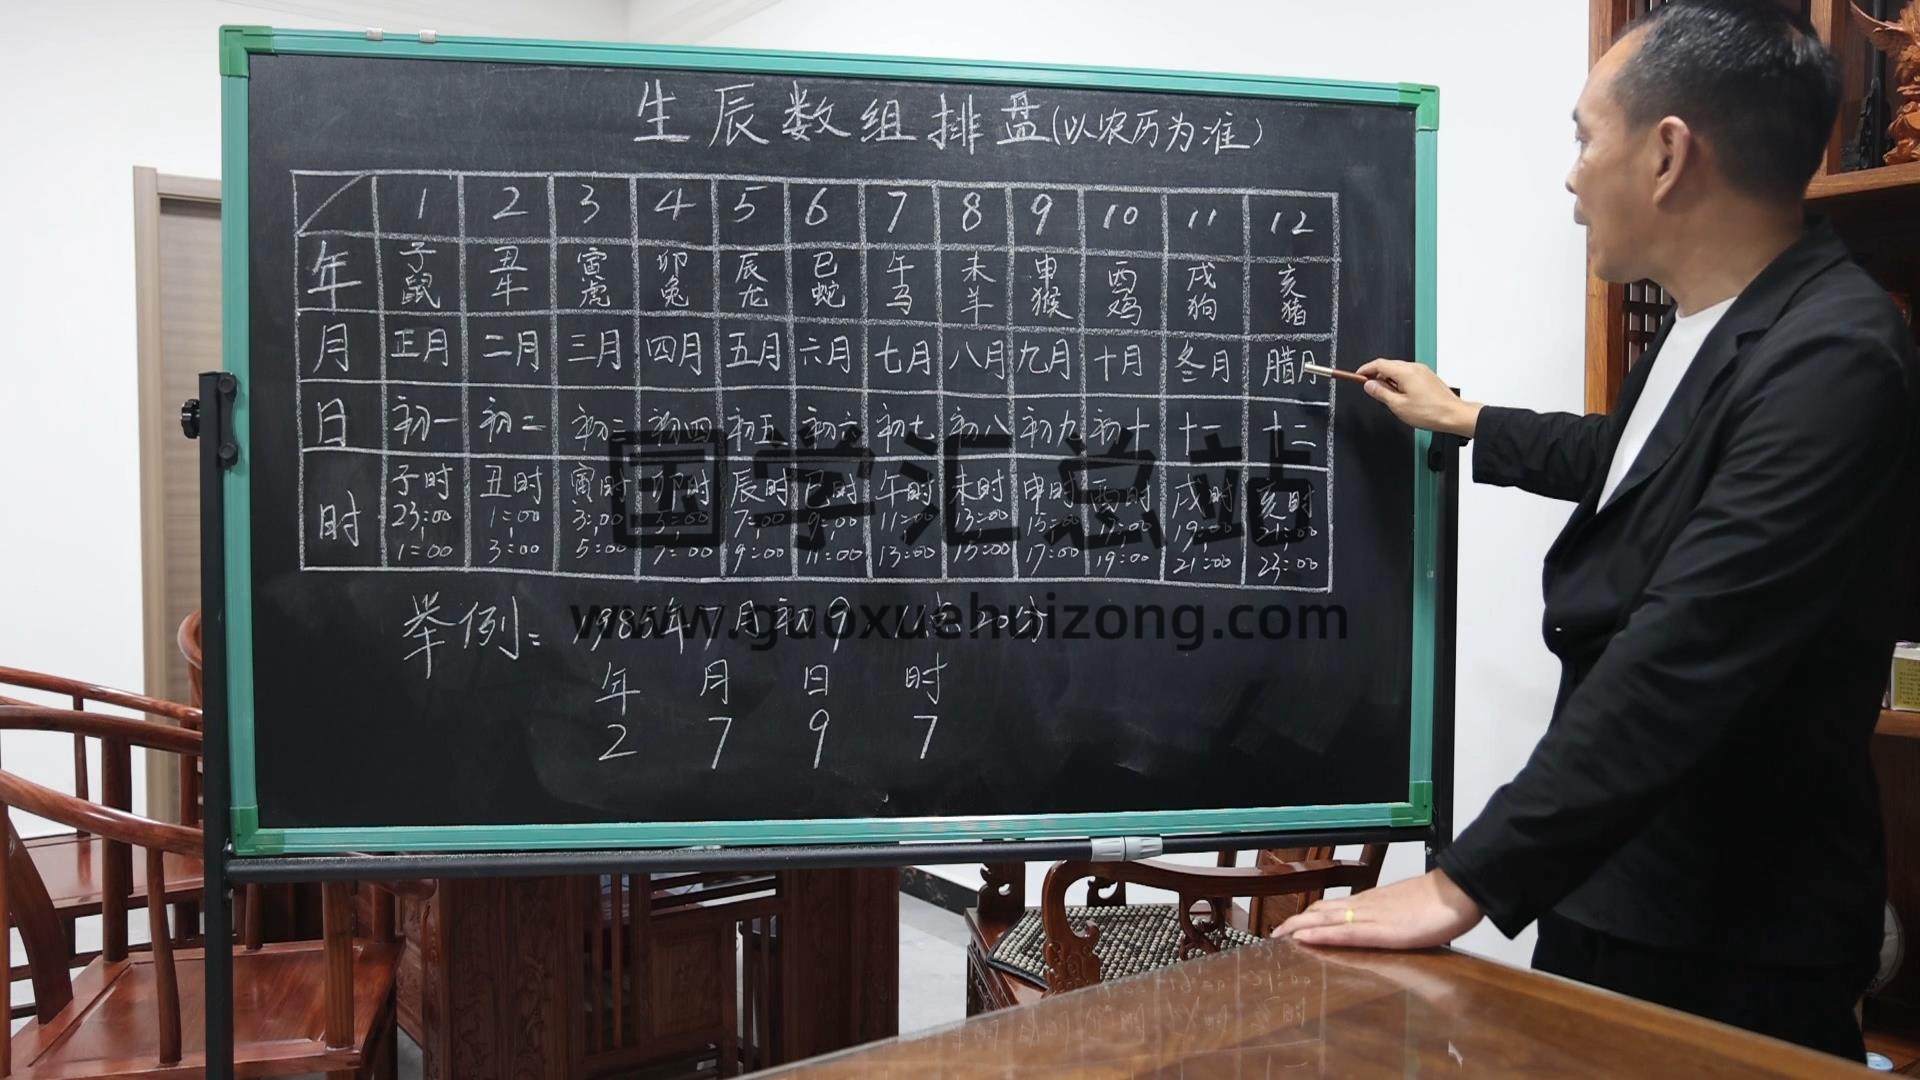 生辰数组排盘(以农历为准)
1 2 3 4 5 6 7 8 9 10 11 12
年 子鼠 丑牛 寅虎 卯兔 辰龙 巳蛇 午马 未羊 申猴 酉鸡 戌狗 亥猪
月 正月 二月 三月 四月 五月 六月 七月 八月 九月 十月 冬月 腊月
日 初一 初二 初三 初四 初五 初六 初七 初八 初九 初十 十一 十二
时 子时 丑时 寅时 卯时 辰时 巳时 午时 未时 申时 酉时 戌时 亥时
23:00 1:00 3:00 5:00 7:00 9:00 11:00 13:00 15:00 17:00 19:00 21:00
1:00 3:00 5:00 7:00 9:00 11:00 13:00 15:00 17:00 19:00 21:00 23:00
国学汇总站
举例: 1985年7月初9 11点20分
www.guoxuehuizong.com
年 月 日 时
2 7 9 7